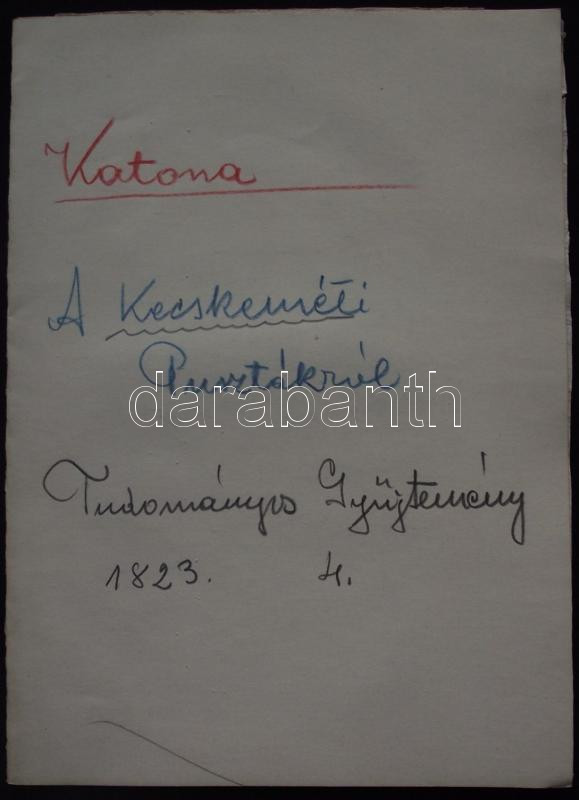 Katona
A Kecskeméti
Pusztákról
darabanth
Tudományos Gyűjtemény
1823. 4.